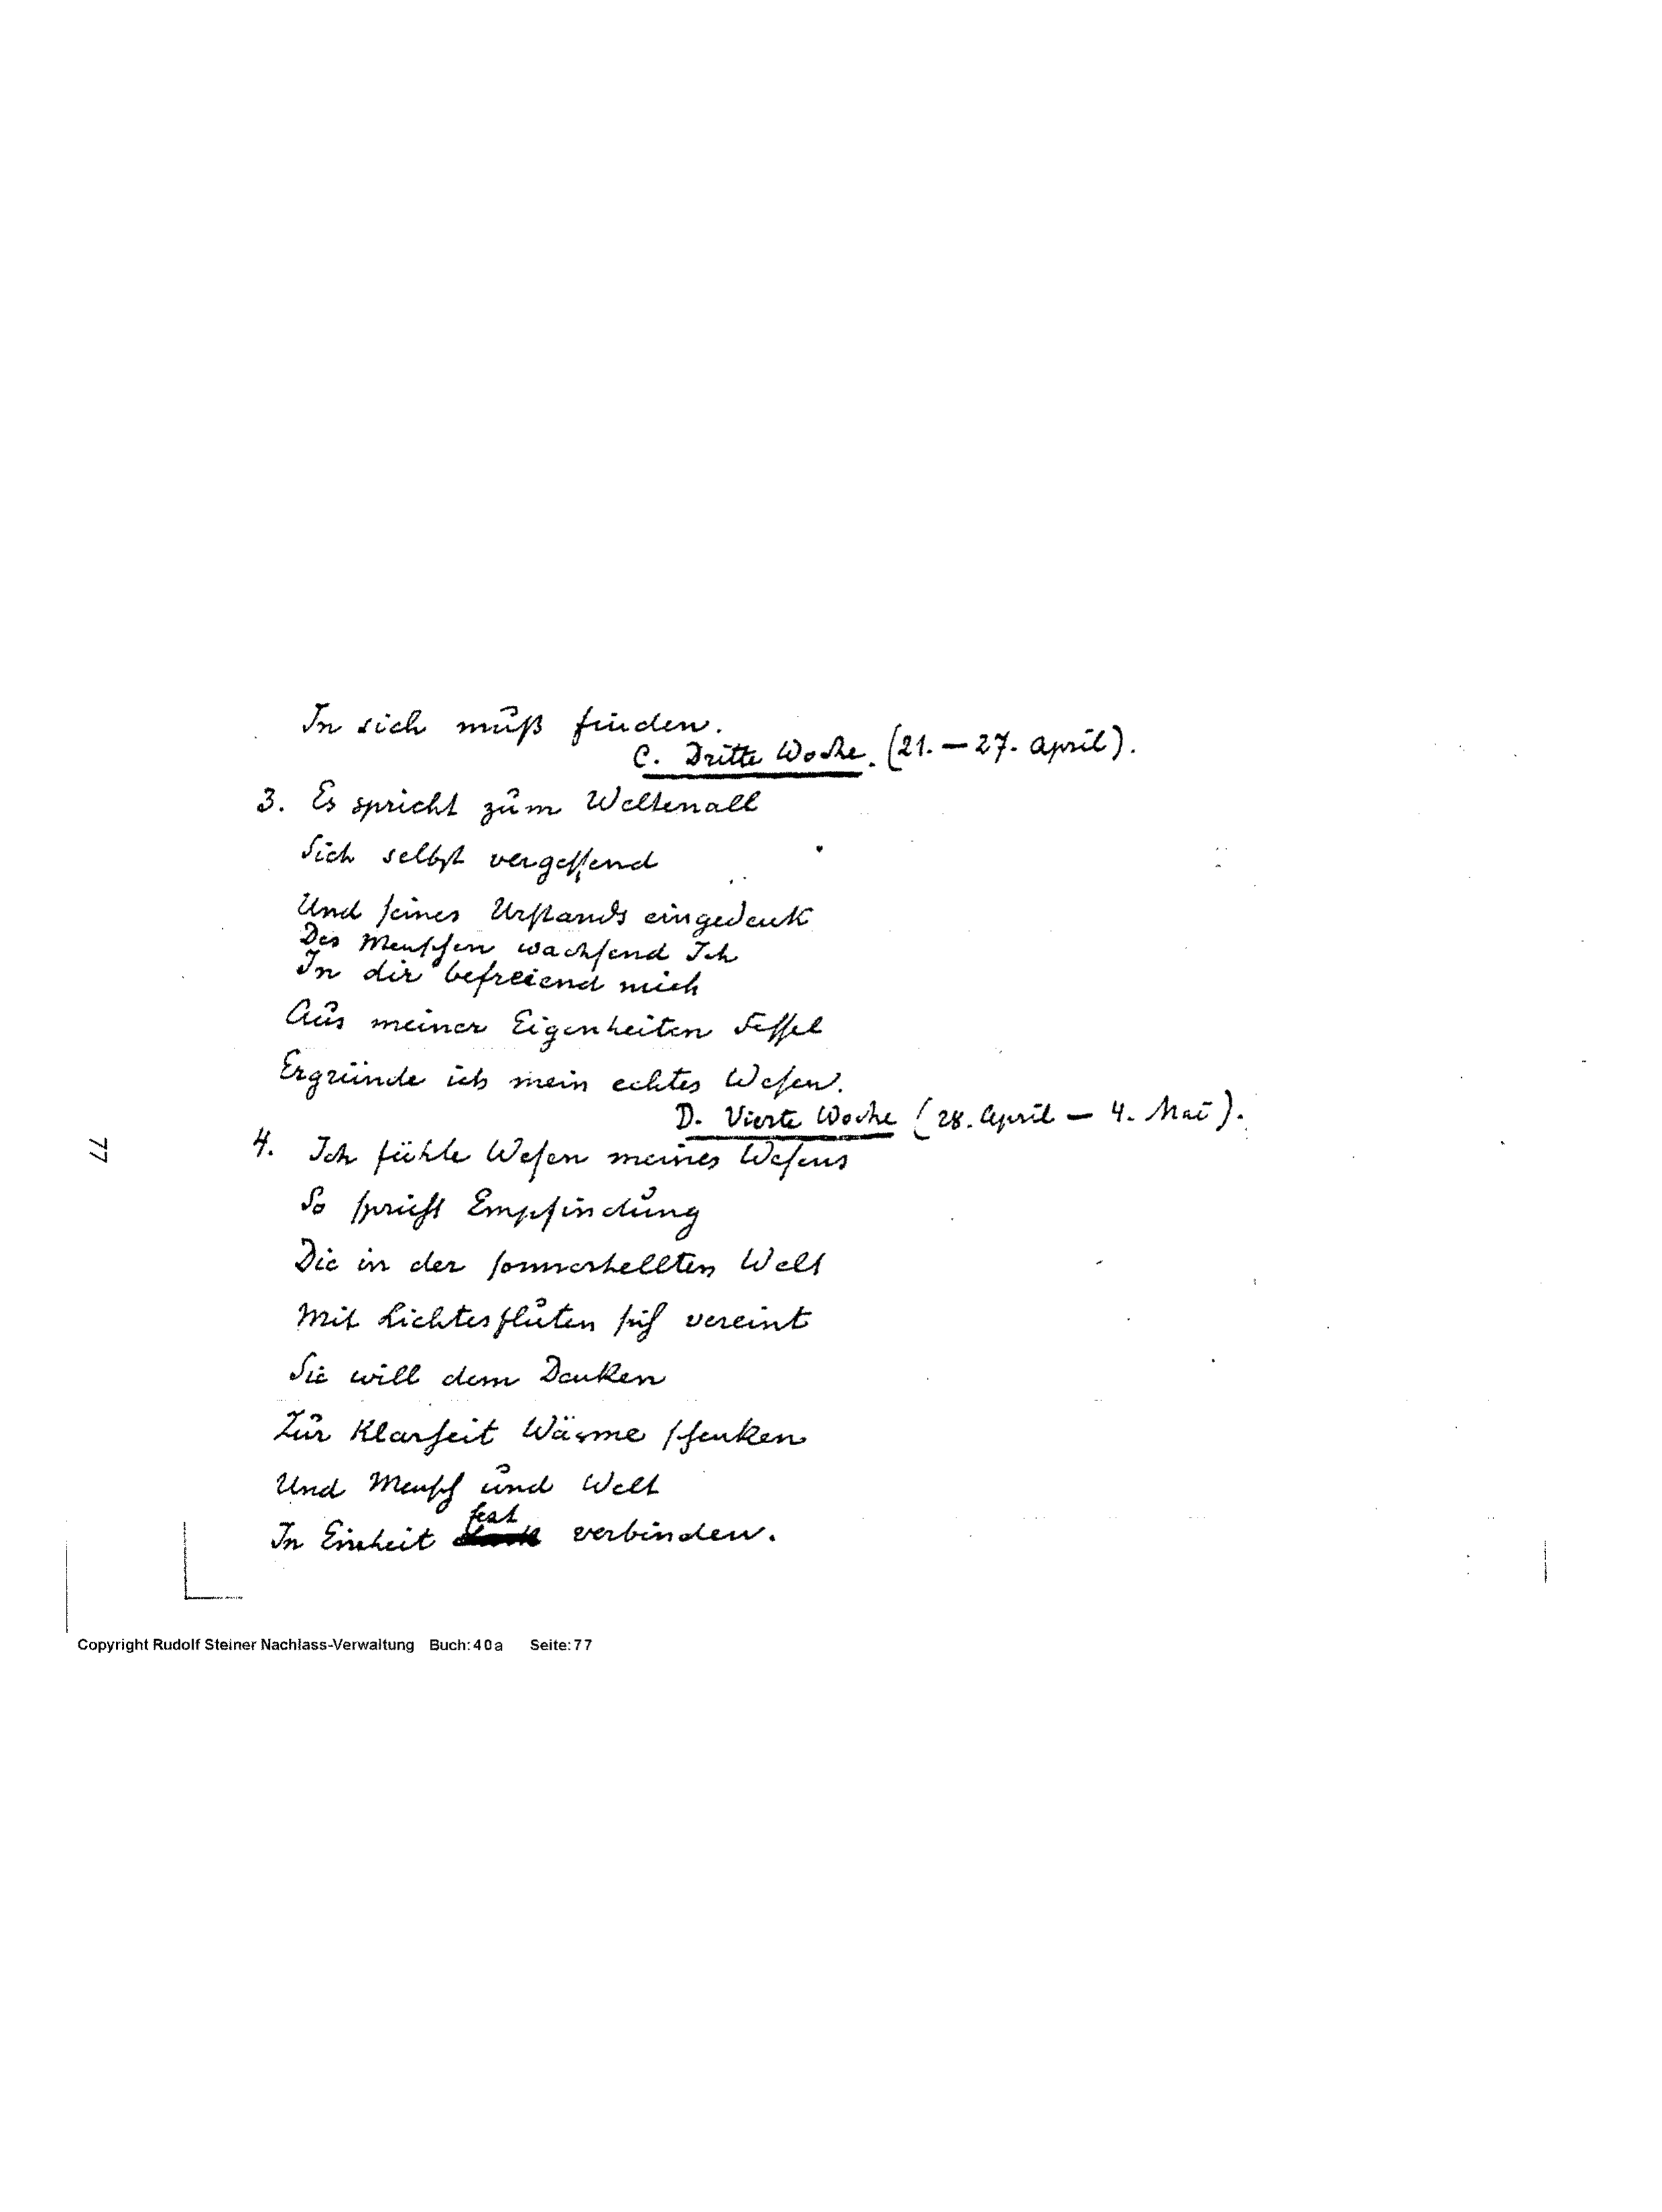 In sich muß finden.
C. Dritte Woche. (21. – 27. April).
3. Es spricht zum Weltenall
Sich selbst vergessend
Und seines Urstands eingedenk
Des Menschen wachsend Ich
In dir befreiend mich
Aus meiner Eigenheiten Fessel
Ergründe ich mein echtes Wesen.
D. Vierte Woche (28. April – 4. Mai).
4. Ich fühle Wesen meines Wesens
So spricht Empfindung
Die in der sonnerhellten Welt
Mit Lichtesfluten sich vereint
Sie will dem Denken
Zur Klarheit Wärme schenken
Und Mensch und Welt
fest
In Einheit verbinden.
77
Copyright Rudolf Steiner Nachlass-Verwaltung Buch: 40a Seite: 77